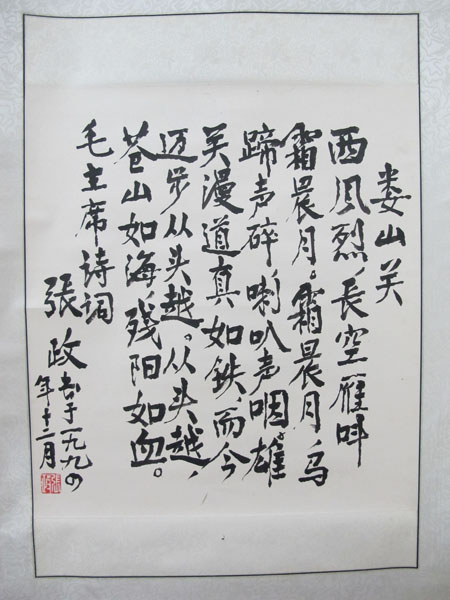 娄山关
西风烈，長空雁叫
霜晨月。霜晨月，马
蹄声碎，喇叭声咽。雄
关漫道真如铁，而今
迈步从头越。从头越，
苍山如海，残阳如血。
毛主席诗词
張政书于一九九四
年十二月